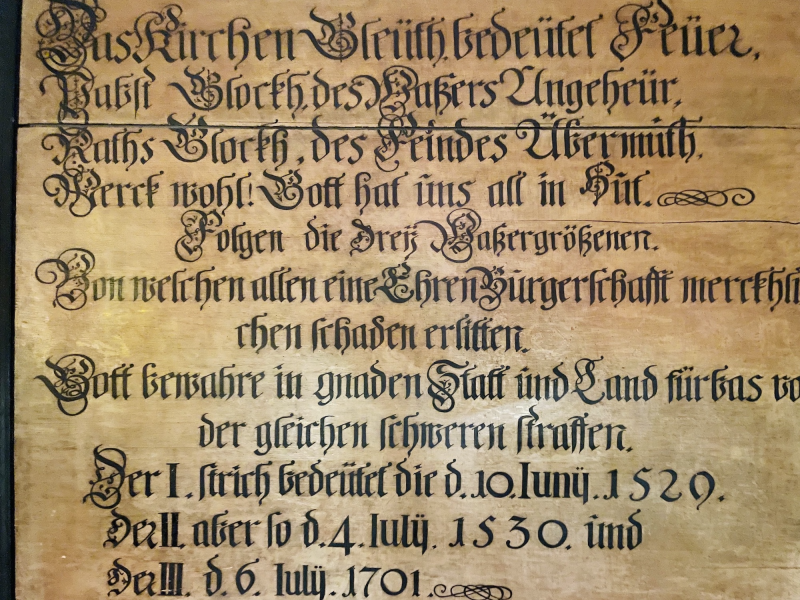 Das Kirchen Gleüth, bedeütet Feüer,
Pabst Glockh, des Waßers Ungeheür,
Raths Glockh, des Feindes Übermüth.
Merck wohl! Gott hat üns all in Hüt.
Folgen die dreÿ Waßergrößenen.
Von welchen allen eine Ehren Bürgerschafft merckhli
chen schaden erlitten.
Gott bewahre in gnaden Statt ünd Land fürbas vo
der gleichen schweren straffen.
Der I. strich bedeütet die d. 10. Iunÿ. 1529.
Der II. aber so d. 4. Iulÿ. 1530. ünd
Der III. d. 6. Iulÿ. 1701.